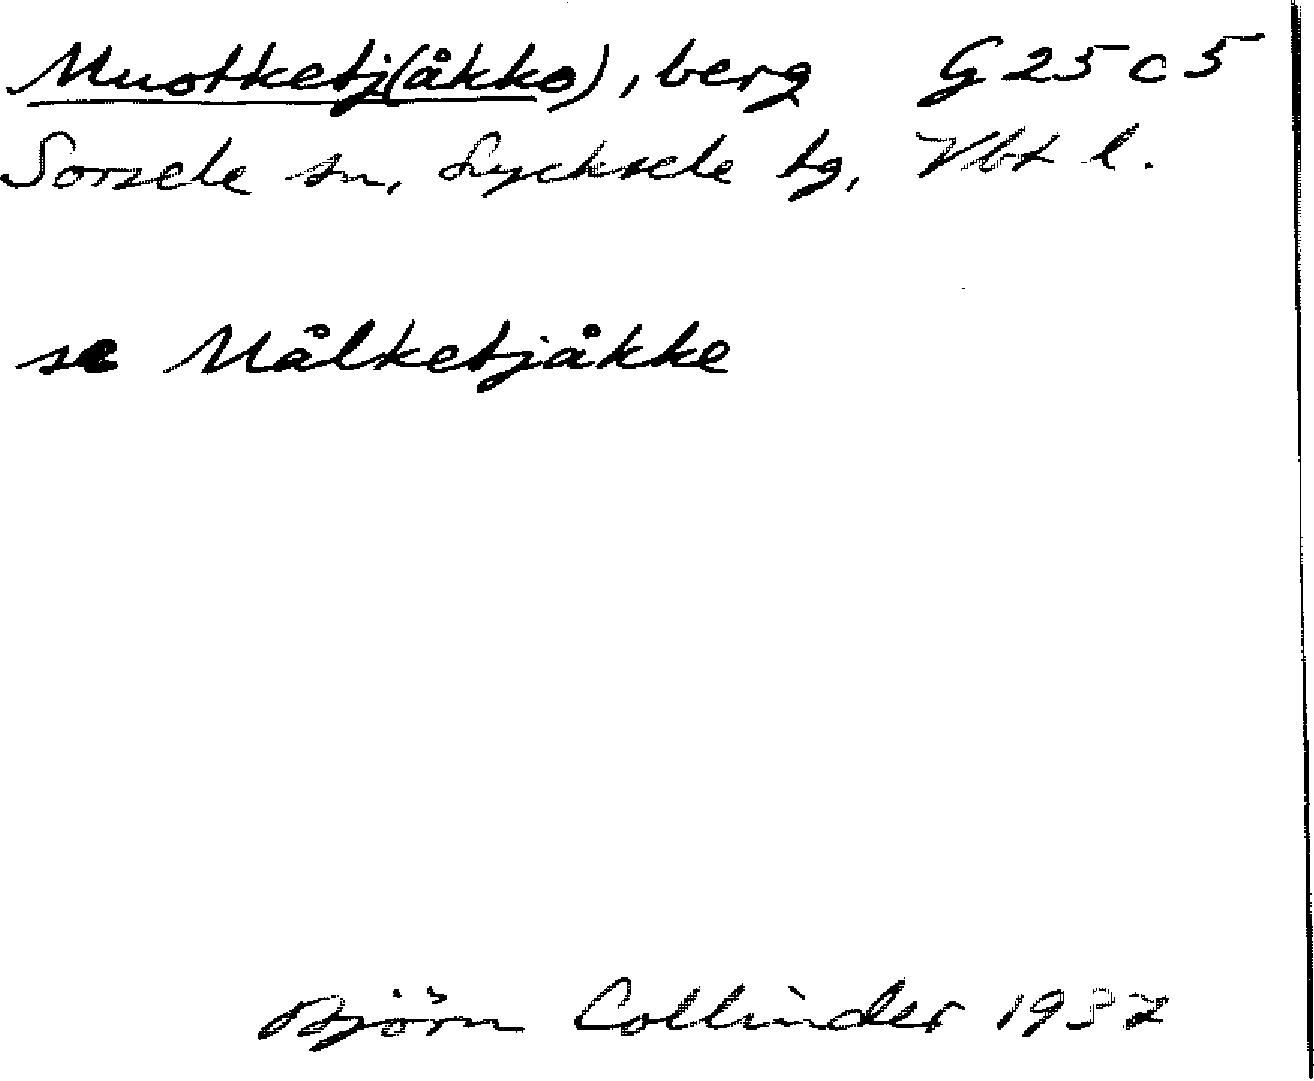 Muotketj(åkko), berg G 25 c 5
Sorsele sn, Lycksele tg, Vbt l.
se Målketjåkke
Björn Collinder 1937